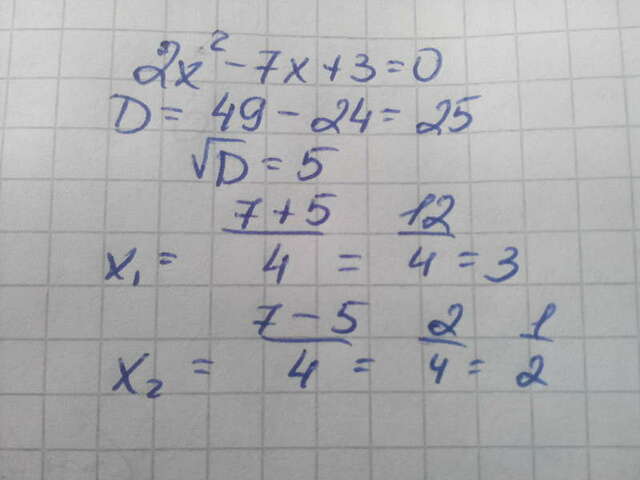 2x² - 7x + 3 = 0
D = 49 - 24 = 25
√D = 5
x₁ = (7 + 5)/4 = 12/4 = 3
x₂ = (7 - 5)/4 = 2/4 = 1/2